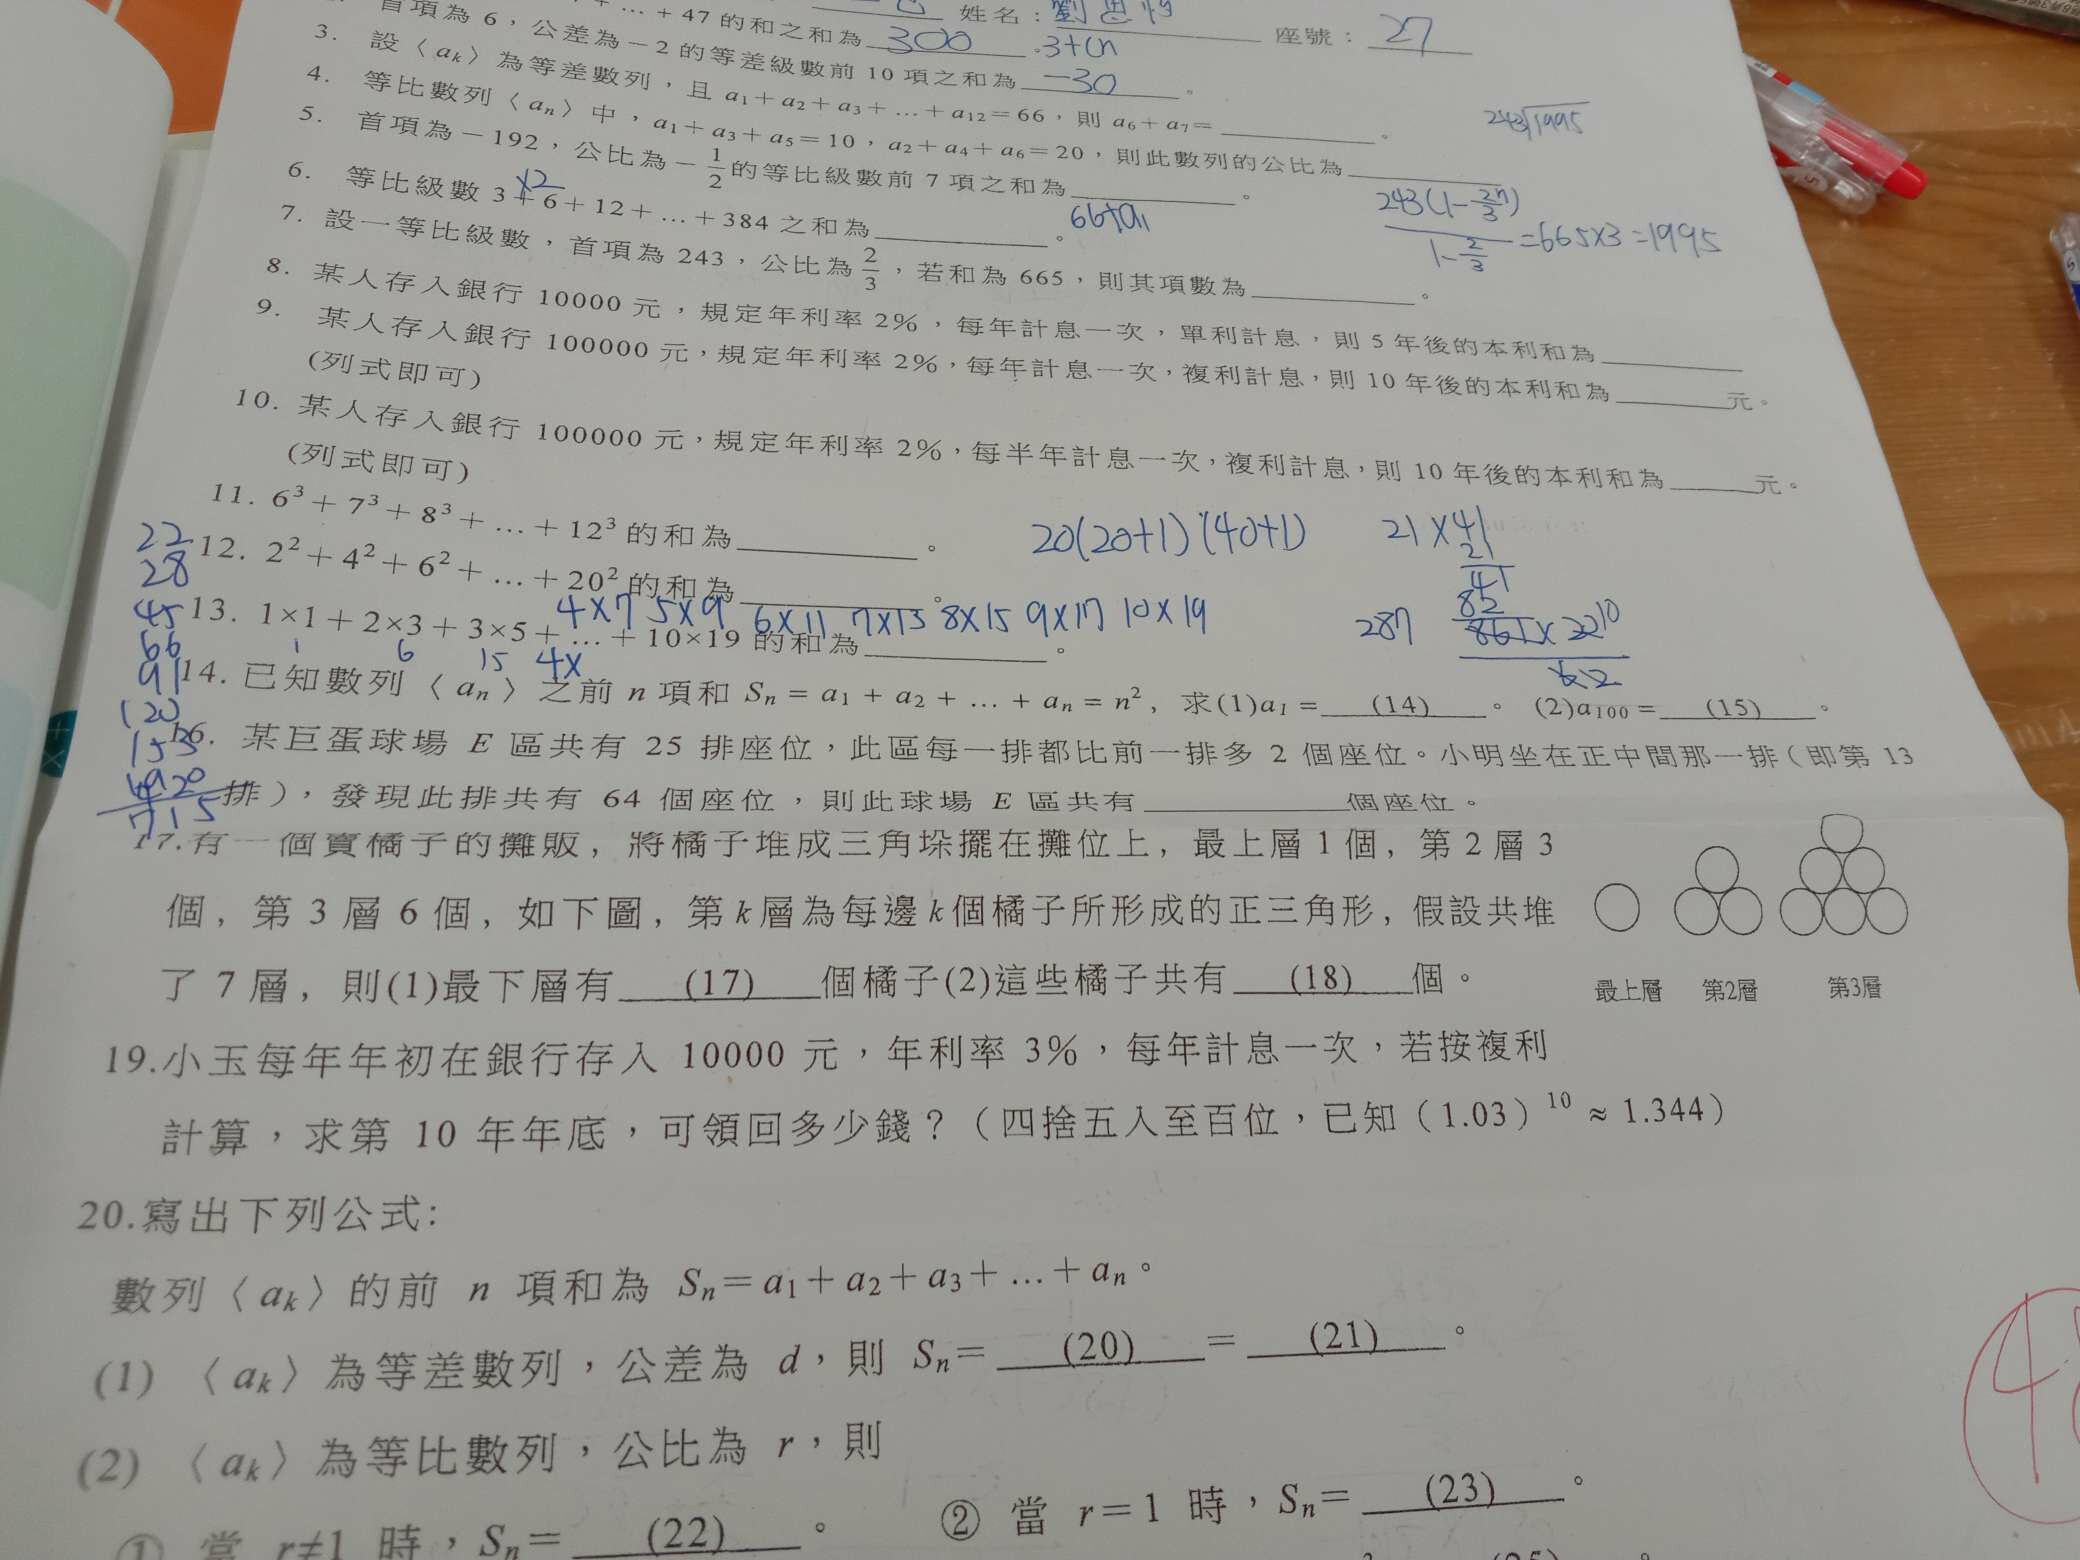 + … + 47 的和之和為 300 。 姓名：劉思 座號：27
首項為 6，公差為－2 的等差級數前 10 項之和為 －30 。 3+(n
3. 設〈ak〉為等差數列，且 a1＋a2＋a3＋…＋a12＝66，則 a6＋a7＝＿＿＿。
4. 等比數列〈an〉中，a1＋a3＋a5＝10，a2＋a4＋a6＝20，則此數列的公比為＿＿＿
5. 首項為－192，公比為－1/2 的等比級數前 7 項之和為＿＿＿。
6. 等比級數 3＋6＋12＋…＋384 之和為＿＿＿。
×2
66+a1
7. 設一等比級數，首項為 243，公比為 2/3，若和為 665，則其項數為＿＿＿。
243√1995
243(1-2/3ⁿ) / 1-2/3 =665×3=1995
8. 某人存入銀行 10000 元，規定年利率 2%，每年計息一次，單利計息，則 5 年後的本利和為＿＿＿
9. 某人存入銀行 100000 元，規定年利率 2%，每年計息一次，複利計息，則 10 年後的本利和為＿＿＿元。
(列式即可)
10. 某人存入銀行 100000 元，規定年利率 2%，每半年計息一次，複利計息，則 10 年後的本利和為＿＿＿元。
(列式即可)
11. 6³＋7³＋8³＋…＋12³ 的和為＿＿＿。
20(20+1)(40+1) 21×41
21
41
82
861×22 10
287
12. 2²＋4²＋6²＋…＋20² 的和為＿＿＿。
4×7 5×9 6×11 7×13 8×15 9×17 10×19
13. 1×1＋2×3＋3×5＋…＋10×19 的和為＿＿＿。
1 6 15 4×
22
28
45
66
91
120
153
715
14. 已知數列〈an〉之前 n 項和 Sn = a1 + a2 + … + an = n²，求(1)a1 = (14) 。 (2)a100 = (15) 。
16. 某巨蛋球場 E 區共有 25 排座位，此區每一排都比前一排多 2 個座位。小明坐在正中間那一排（即第 13
排），發現此排共有 64 個座位，則此球場 E 區共有＿＿＿個座位。
17.有一個賣橘子的攤販，將橘子堆成三角垛擺在攤位上，最上層 1 個，第 2 層 3
個，第 3 層 6 個，如下圖，第 k 層為每邊 k 個橘子所形成的正三角形，假設共堆
了 7 層，則(1)最下層有 (17) 個橘子(2)這些橘子共有 (18) 個。
最上層 第2層 第3層
19.小玉每年年初在銀行存入 10000 元，年利率 3%，每年計息一次，若按複利
計算，求第 10 年年底，可領回多少錢？（四捨五入至百位，已知（1.03）¹⁰ ≈ 1.344）
20.寫出下列公式:
數列〈ak〉的前 n 項和為 Sn＝a1＋a2＋a3＋…＋an。
(1) 〈ak〉為等差數列，公差為 d，則 Sn＝ (20) ＝ (21) 。
(2) 〈ak〉為等比數列，公比為 r，則
① 當 r≠1 時，Sn＝ (22) 。 ② 當 r＝1 時，Sn＝ (23) 。